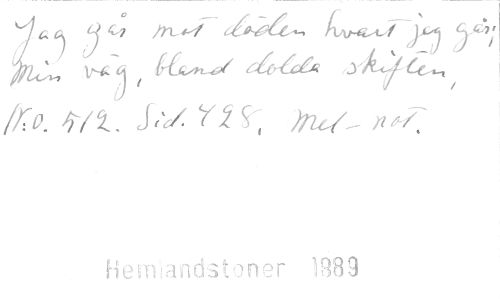 Jag går mot döden hvart jag går;
Min väg, bland dolda skiften,
N:o. 512. Sid. 428. Mel-not.
Hemlandstoner 1889